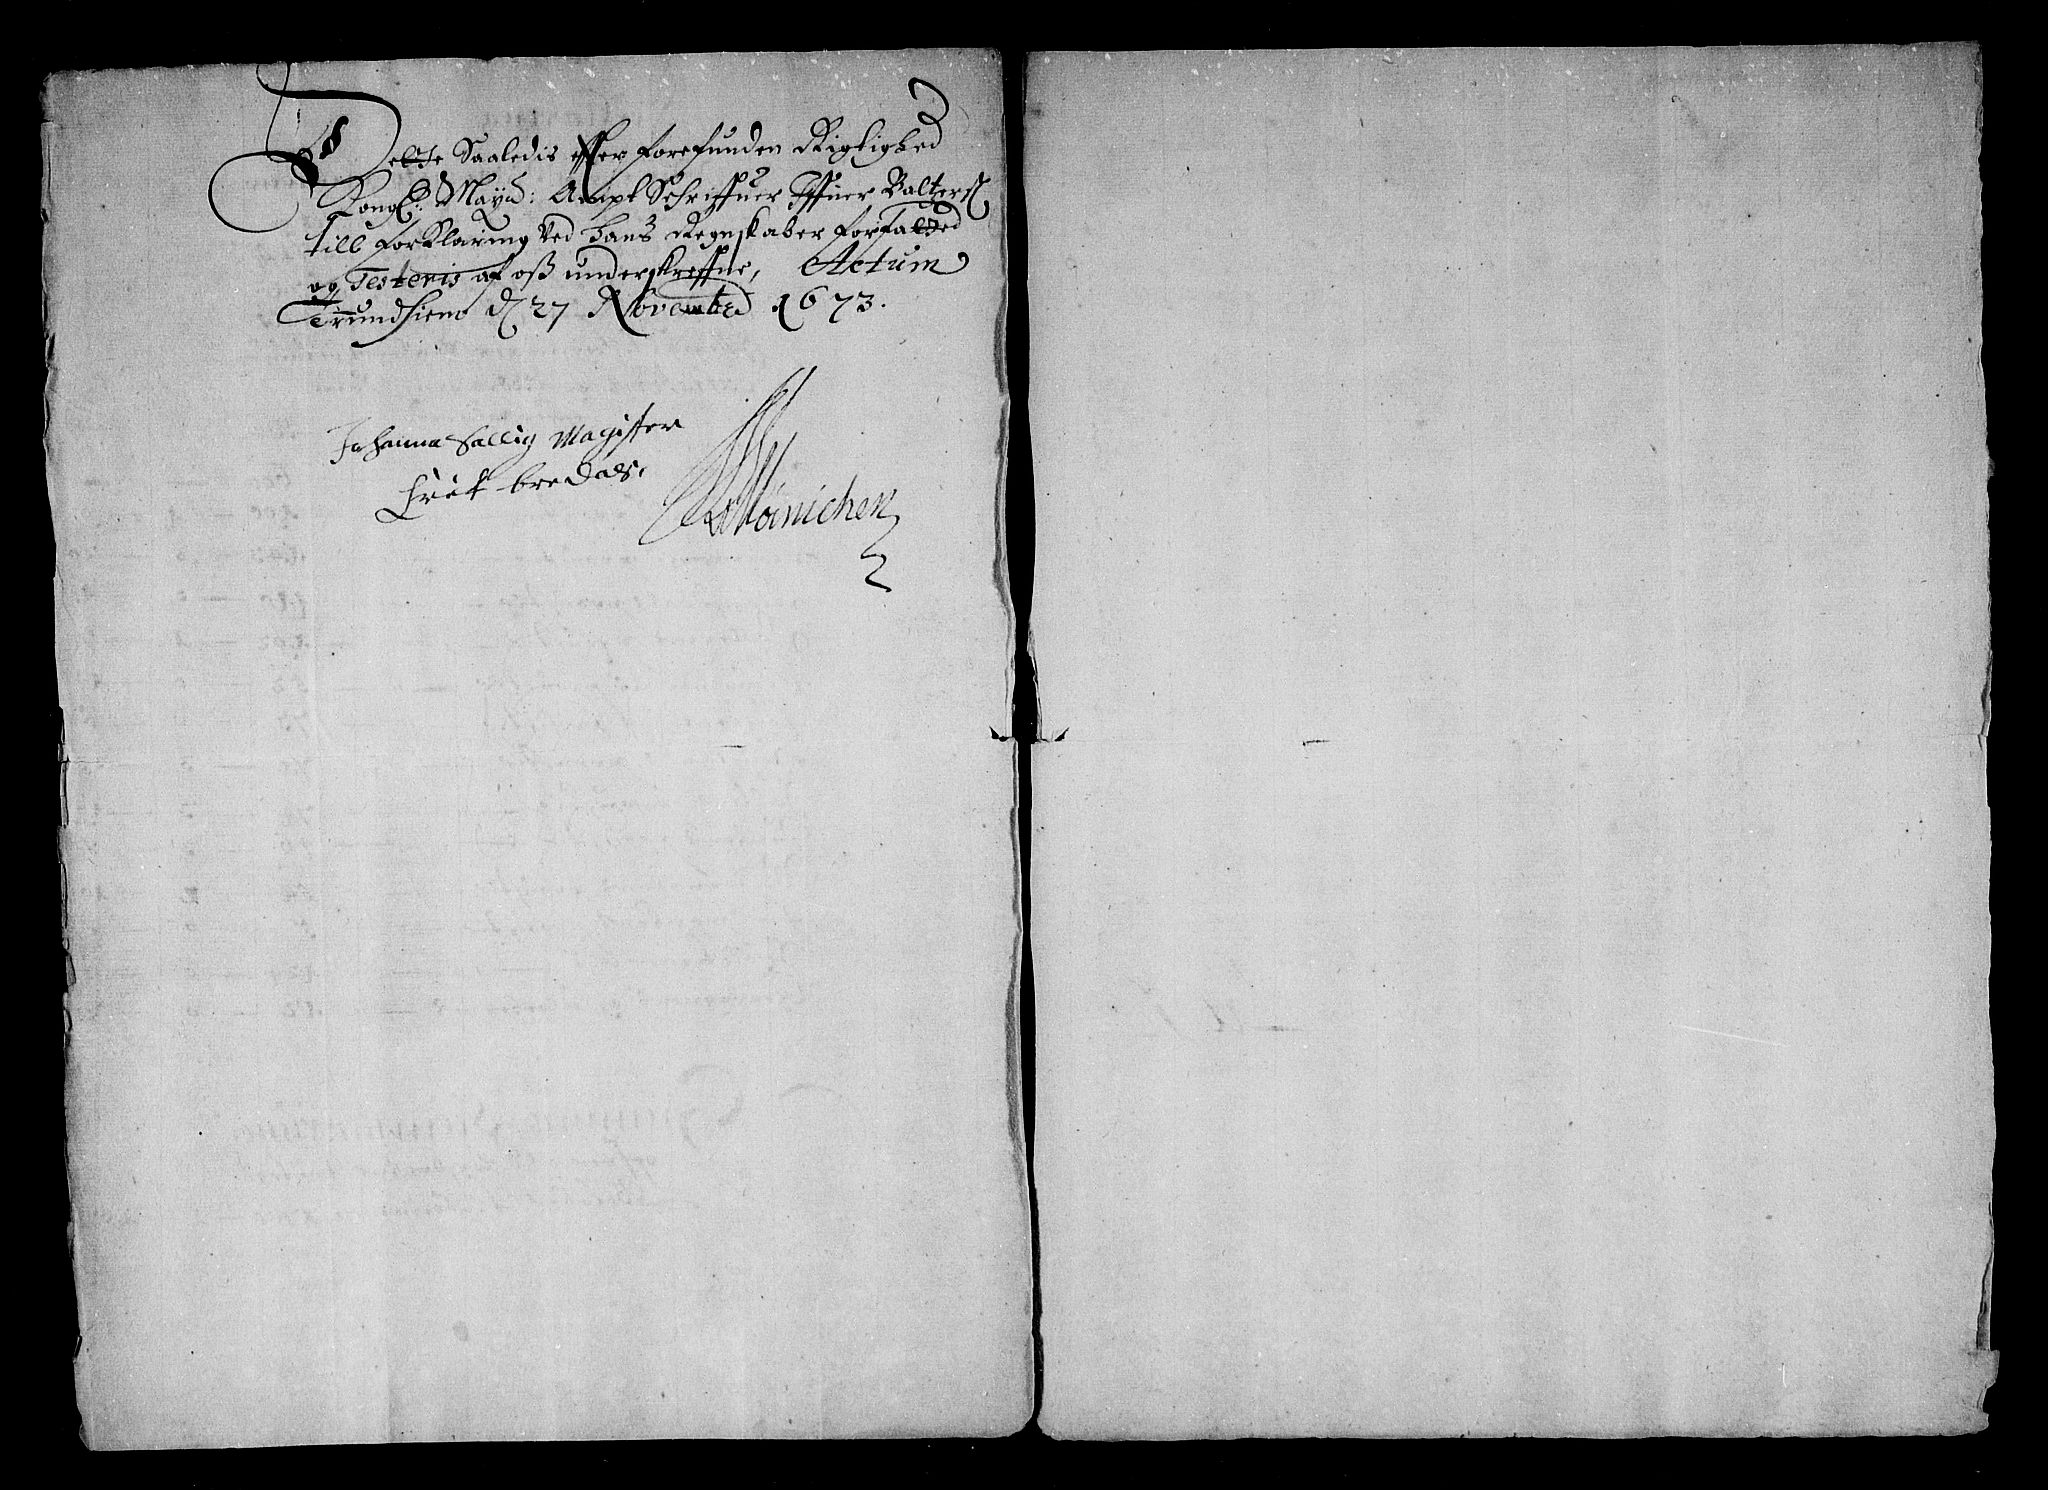 Dette Saaledis effter forefunden Rigtighed
Kongl: Mayst: Ampt Schriffuer Iffuer Baltzers:
till forklaring Ved hans Regnskaber forfatted
og Testeris af oß underskreffne, Actum
Trundhiem d 27 Novembr 1673.
Johanna Sallig Magister
Erik bredal
Mönichen